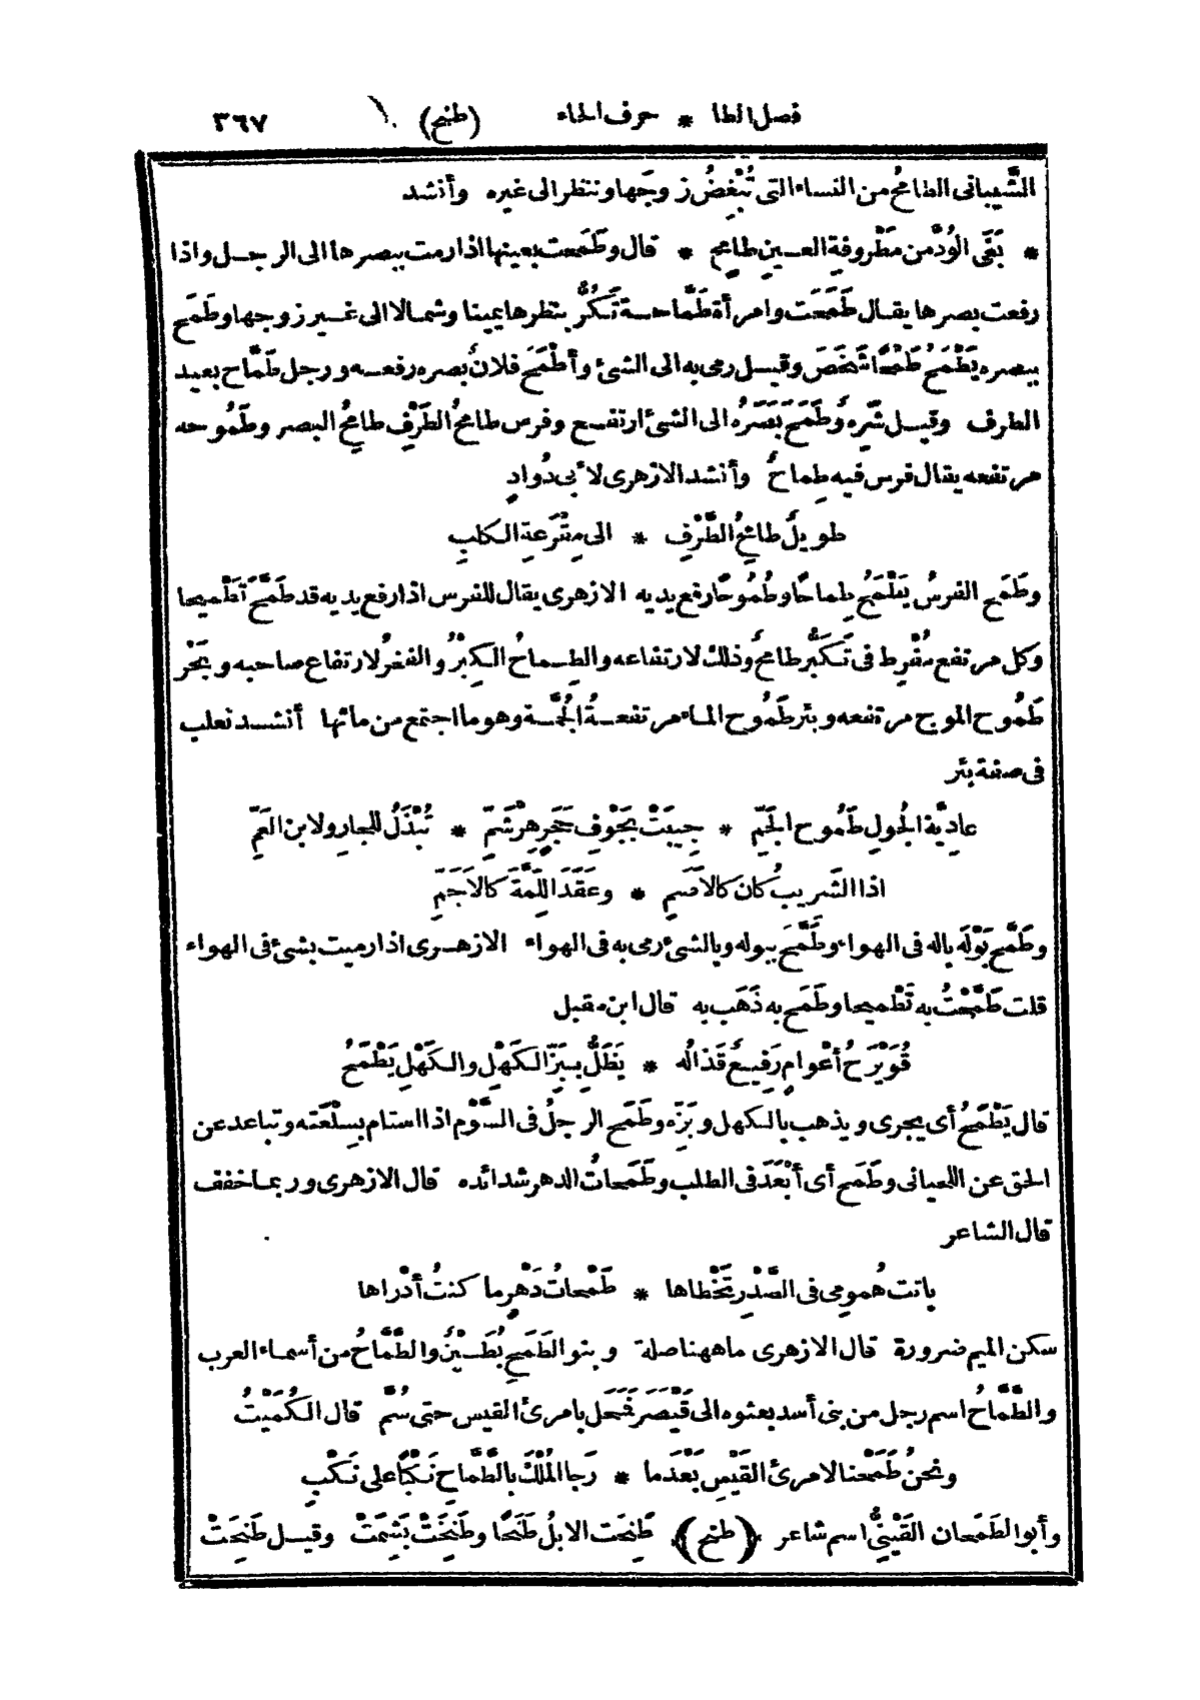 فصل الطا * حرف الحاء (طنح) ٣٦٧
الشَّيبانى الطامحُ من النساء التى تُبْغِضُ زوجَها وتنظر الى غيره وأنشد
* بَغَى الوُدَّ من مَطْروفةِ العينِ طامِحِ * قال وطَمَحت بعينها اذا رمت ببصرها الى الرجل واذا
رفعت بصرها يقال طَمَحَت وامرأة طَمَّاحة تَكُرُّ بنظرها يمينا وشمالا الى غير زوجها وطَمَح
ببصره يَطْمَحُ طَمْحًا شَخَصَ وقيل رمى به الى الشئ وأَطْمَحَ فلانٌ بصره رفعه ورجل طَمَّاح بعيد
الطرف وقيل شَرِه وطَمَحَ بَصَرُه الى الشئ ارتفع وفرس طامحُ الطَرْفِ طامِحُ البصر وطَمُوحه
مرتفعه يقال فرس فيه طِماحٌ وأنشد الازهرى لأبى دُوادٍ
طويلٌ طامِحُ الطَّرْفِ * الى مِقْرَعةِ الكلبِ
وطَمَح الفرسُ يَطْمَحُ طِماحًا وطُمُوحًا رفع يديه الازهرى يقال للفرس اذا رفع يديه قد طَمَّحَ تَطْميحا
وكل مرتفع مُفْرِط فى تَكَبُّر طامحٌ وذلك لارتفاعه والطِماحُ الكِبْرُ والفخرُ لارتفاع صاحبه وبَحْر
طَمُوح الموج مرتفعه وبئر طَمُوح الماء مرتفعةُ الجُمَّة وهو ما اجتمع من مائها أنشد ثعلب
فى صفة بئر
عادِيَّة الجُولِ طَمُوح الجَمِّ * جِيبَتْ بجَوْفِ حَجَرٍ هِرْشَمِّ * تُبْذَلُ للجارِ ولابن العَمِّ
اذا الشَّرِيبُ كان كالاَصَمِ * وعَقَدَ اللِّمَّةَ كالاَجَمِّ
وطَمَّح بَوْلَه باله فى الهواء وطَمَّحَ ببوله وبالشئ رمى به فى الهواء الازهرى اذا رميت بشئ فى الهواء
قلت طَمَّحْتُ به تَطْميحا وطَمَح به ذَهَب به قال ابن مقبل
قُوَيْرِحُ أَعْوامٍ رَفِيعٌ قَذالُه * يَظَلُّ بِبَزِّ الكَهْلِ والكَهْلِ يَطْمَحُ
قال يَطْمَحُ أى يجرى ويذهب بالكهل وبَزِّه وطَمَح الرجلُ فى السَّوْم اذا استام بسِلْعَته وتباعد عن
الحق عن اللحيانى وطَمَح أى أَبْعَدَ فى الطلب وطَمَحاتُ الدهر شدائده قال الازهرى وربما خفف
قال الشاعر
باتت هُمومِى فى الصَّدْرِ تَحْطاها * طَمْحاتُ دَهْرٍ ما كنتُ أَدْراها
سكن الميم ضرورة قال الازهرى ما ههنا صلة وبنو الطَمَحِ بُطَيْنٌ والطَّمَّاحُ من أسماء العرب
والطَّمَّاحُ اسم رجل من بنى أسد بعثوه الى قَيْصَرَ فَمَحَل بامرئ القيس حتى سُمَّ قال الكُمَيْتُ
ونحنُ طَمَحْنا لامرئ القَيْسِ بَعْدَما * رَجا المُلْكَ بالطَّمَّاحِ نَكْبًا على نَكْبِ
وأبو الطَمَحان القَيْنِىُّ اسم شاعر (طنح) طَنِحَت الابلُ طَنَحًا وطَنِخَتْ بَشِمَتْ وقيل طَنِحَتْ